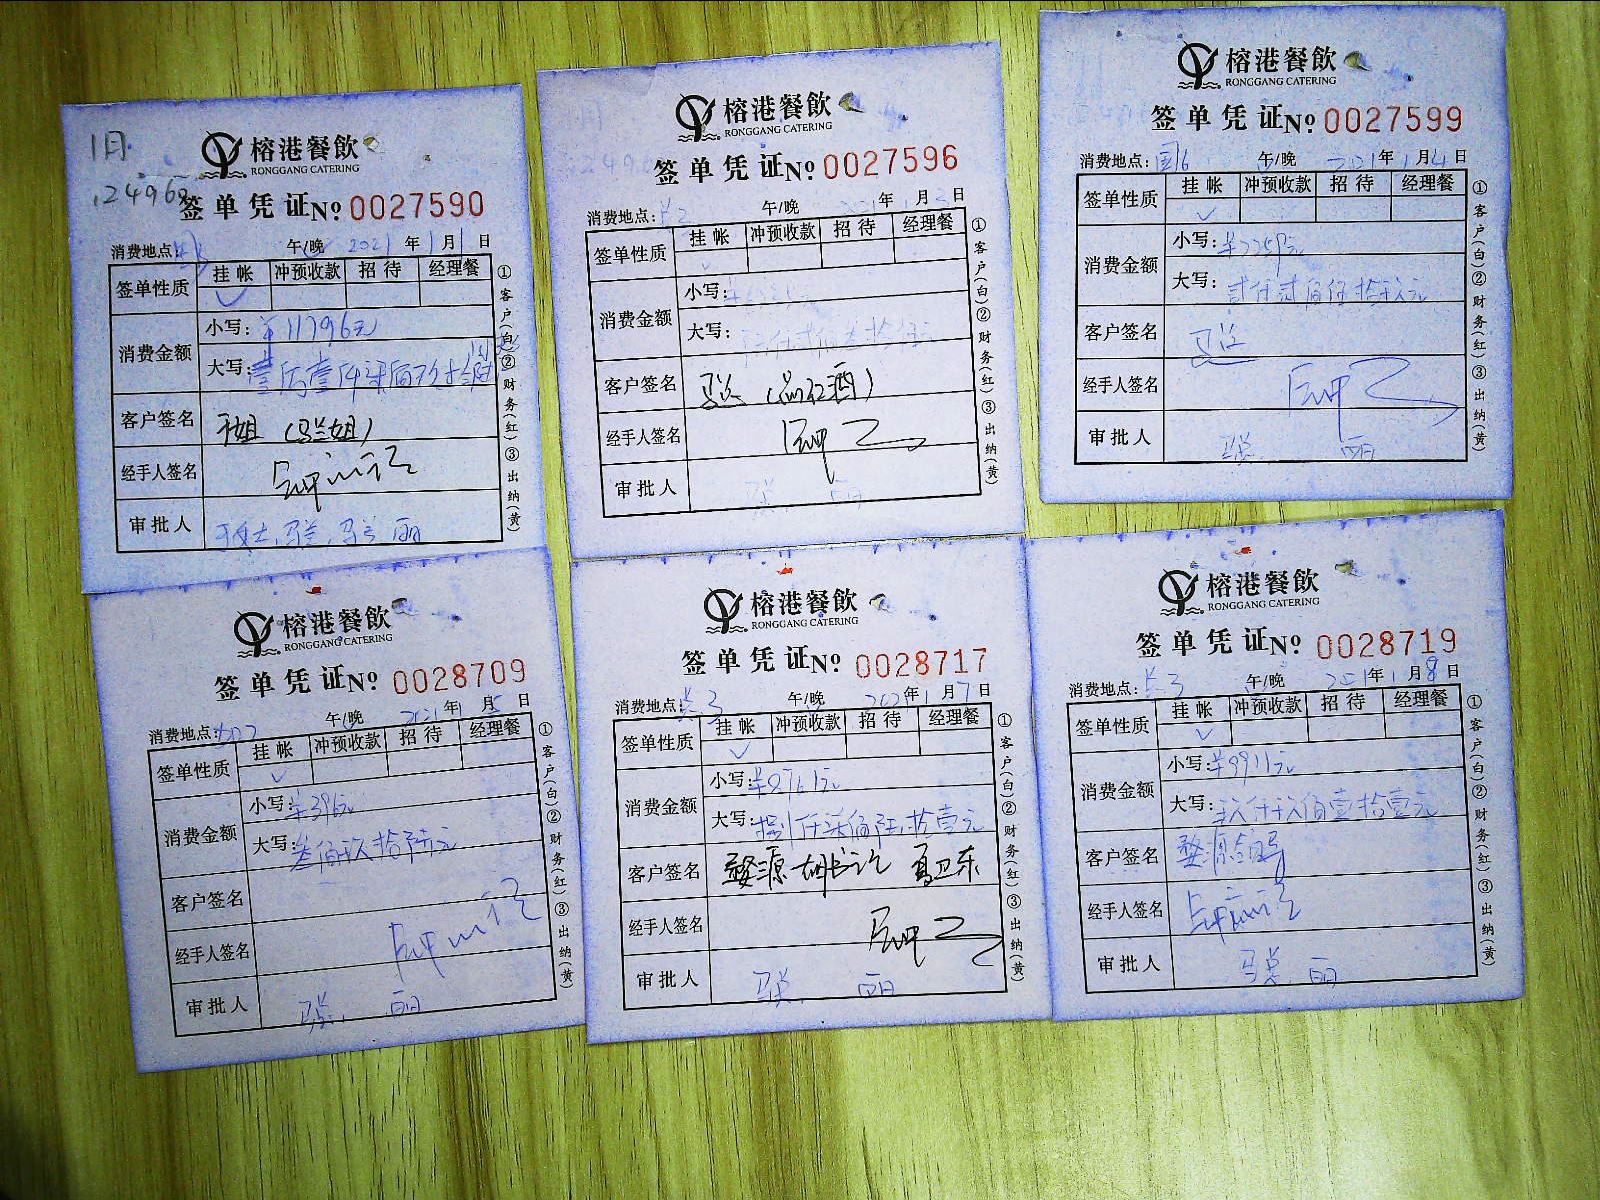 1日
榕港餐飲
RONGGANG CATERING
签单凭证 No 0027590
消费地点: 午/晚 2021年1月1日
签单性质 挂帐 冲预收款 招待 经理餐
✓
消费金额 小写:¥11796元
大写:
客户签名 (马兰姐)
经手人签名
审批人 丽
①客户(白)②财务(红)③出纳(黄)
榕港餐飲
RONGGANG CATERING
签单凭证 No 0027596
消费地点: 午/晚 年 月 日
签单性质 挂帐 冲预收款 招待 经理餐
✓
消费金额 小写:
大写:
客户签名
经手人签名
审批人 丽
①客户(白)②财务(红)③出纳(黄)
榕港餐飲
RONGGANG CATERING
签单凭证 No 0027599
消费地点: 午/晚 2021年1月4日
签单性质 挂帐 冲预收款 招待 经理餐
✓
消费金额 小写:
大写:贰仟贰佰伍拾玖元
客户签名
经手人签名
审批人 丽
①客户(白)②财务(红)③出纳(黄)
榕港餐飲
RONGGANG CATERING
签单凭证 No 0028709
消费地点: 午/晚 2021年1月5日
签单性质 挂帐 冲预收款 招待 经理餐
✓
消费金额 小写:¥396元
大写:叁佰玖拾陆元
客户签名
经手人签名
审批人 丽
①客户(白)②财务(红)③出纳(黄)
榕港餐飲
RONGGANG CATERING
签单凭证 No 0028717
消费地点: 午/晚 2021年1月7日
签单性质 挂帐 冲预收款 招待 经理餐
✓
消费金额 小写:¥8761元
大写:捌仟柒佰陆拾壹元
客户签名 婺源胡书记
经手人签名
审批人 丽
①客户(白)②财务(红)③出纳(黄)
榕港餐飲
RONGGANG CATERING
签单凭证 No 0028719
消费地点: 午/晚 2021年1月8日
签单性质 挂帐 冲预收款 招待 经理餐
✓
消费金额 小写:¥9911元
大写:玖仟玖佰壹拾壹元
客户签名 婺源
经手人签名
审批人 丽
①客户(白)②财务(红)③出纳(黄)